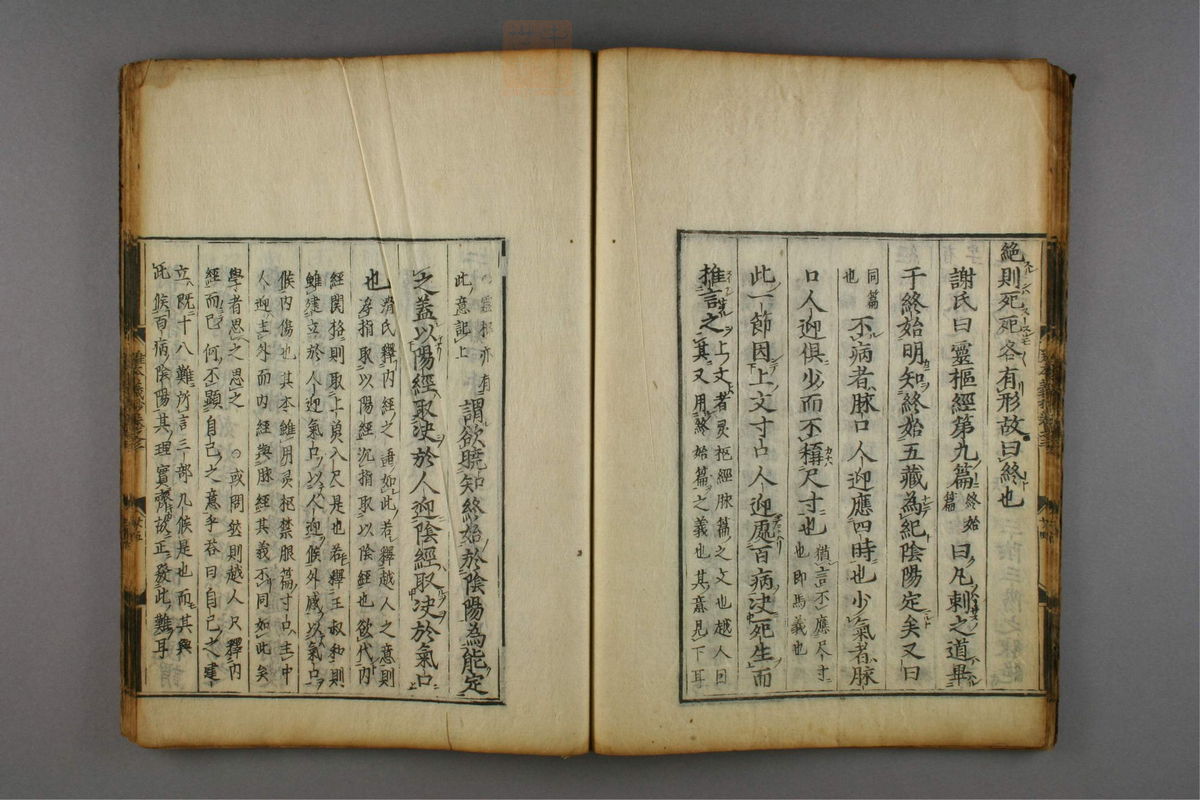 絶則死死各有形故曰終也
謝氏曰靈樞經第九篇終始篇曰凡刺之道畢
于終始明知終始五藏為紀陰陽定矣又曰
同篇也不病者脉口人迎應四時也少氣者脉
口人迎俱少而不稱尺寸也猶言不應尺寸也即馬義也
此一節因上文寸口人迎處百病决死生而
推言之上文者灵枢經脉篇之文也越人因其又用終始篇之義也其意見下耳
灵枢亦有此意記上謂欲曉知終始於陰陽為能定
之蓋以陽經取决於人迎陰經取决於氣口
也滑氏釋内經之通如此若釋越人之意則浮指取以陽經沉指取以陰經也欲代内
經関格則取上魚入尺是也若釋王叔和則
雖建立於人迎氣口以人迎候外感以氣口
候内傷也其本雖用灵枢禁服篇寸口主中
人迎主外而内經與脉經其義不同如此矣
學者思之思之○或問然則越人只釋内
經而已何不顯自己之意乎荅曰自己之建
立既十八難所言三部九候是也而其與
此候百病陰陽其理實齊故正發此難耳